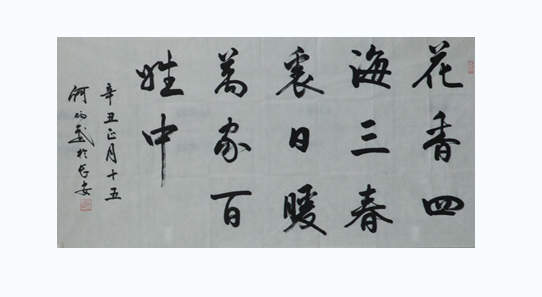 花香四
海三春
裏日暖
萬家百
姓中
辛丑正月十五
何炳武於长安